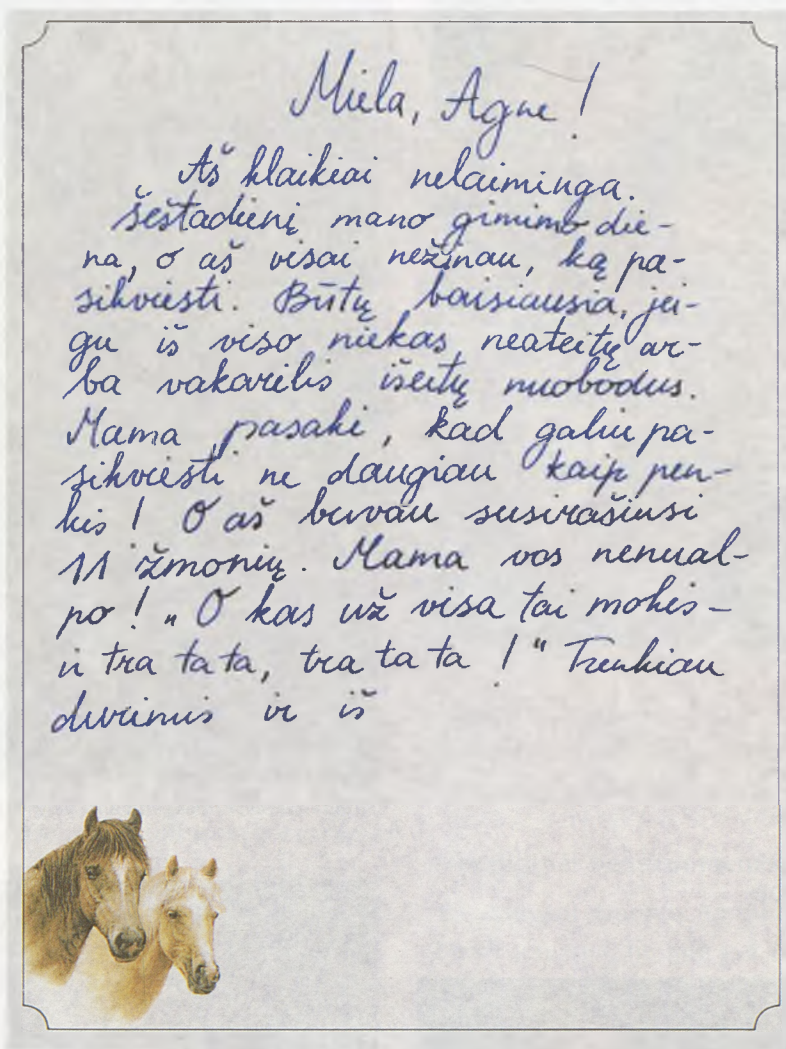 Miela, Agne!
Aš klaikiai nelaiminga.
šeštadienį mano gimimo die-
na, o aš visai nežinau, ką pa-
sikviesti. Būtų baisiausia, jei-
gu iš viso niekas neateitų ar-
ba vakarėlis išeitų nuobodus.
Mama pasakė, kad galiu pa-
sikviesti ne daugiau kaip pen-
kis! O aš buvau susirašiusi
11 žmonių. Mama vos nenual-
po! „O kas už visa tai mokės -
ir tra ta ta, tra ta ta!" Trenkiau
durimis ir iš